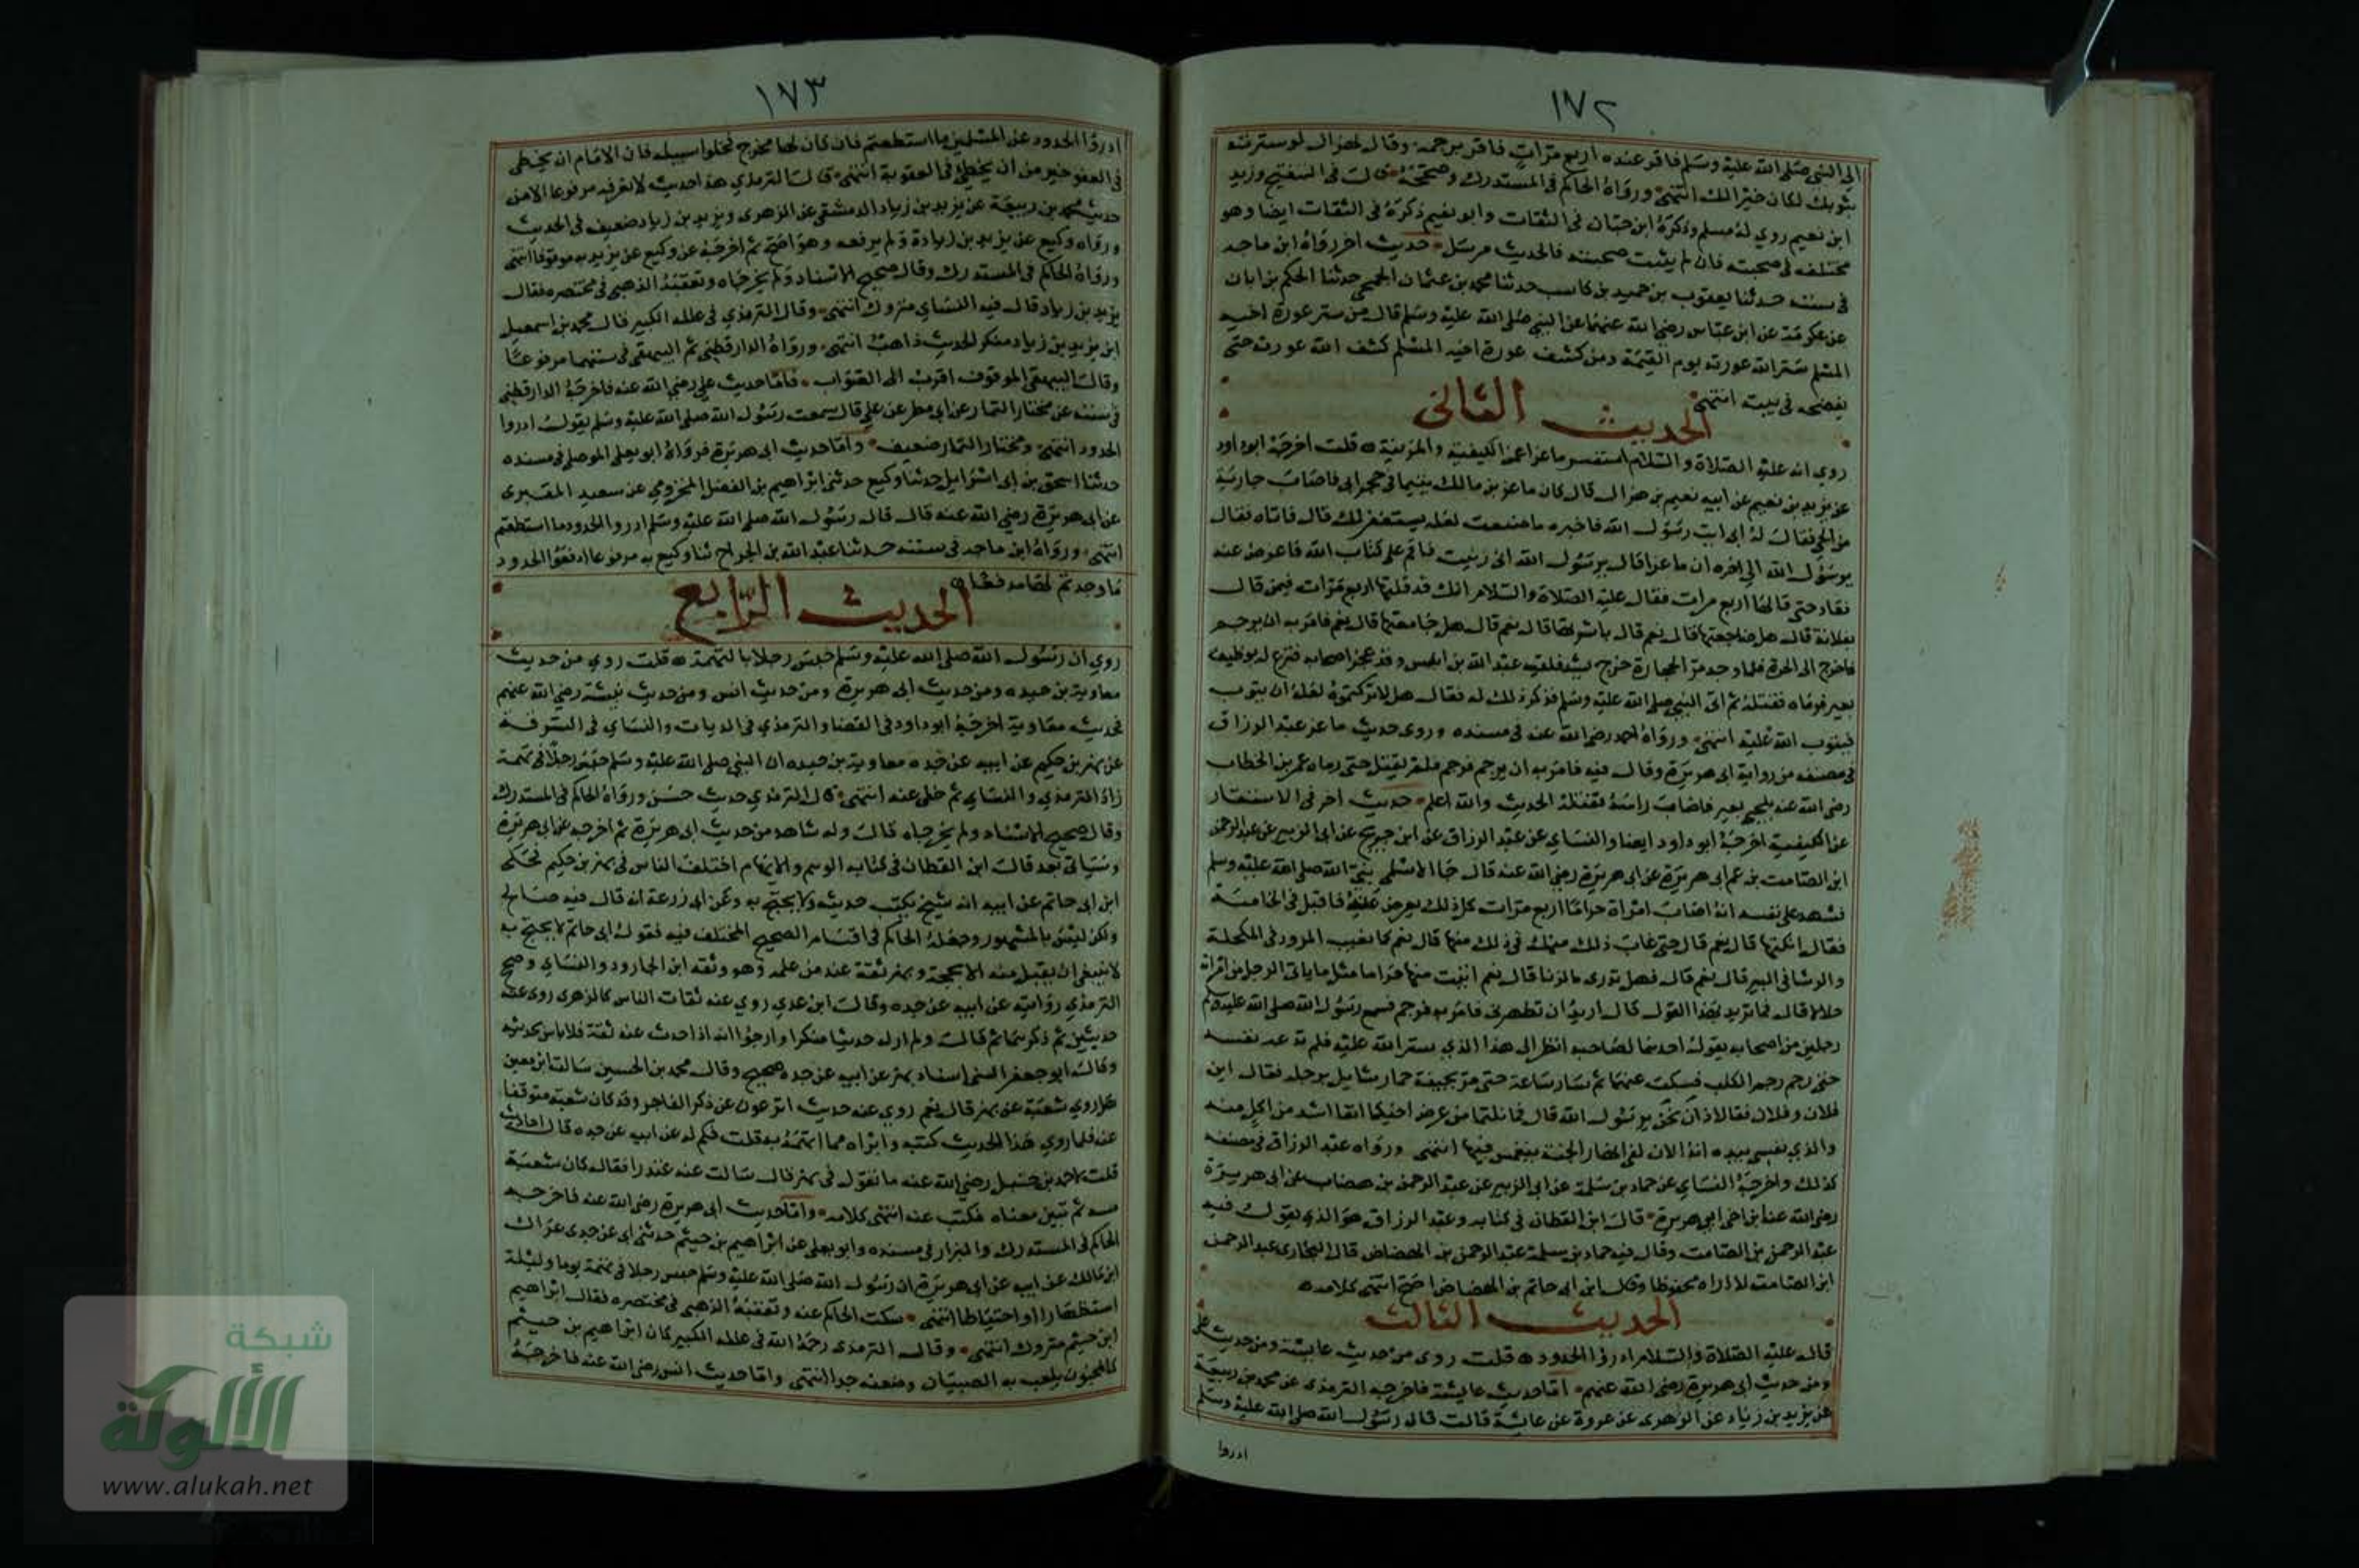 ١٧٢
الى النبي صلى الله عليه وسلم فاقر عنده اربع مرات فامر برجمه وقال لهزال لو سترته
بثوبك لكان خيرا لك انتهى ورواه الحاكم في المستدرك وصححه قال في التنقيح ويزيد
ابن نعيم روى له مسلم وذكره ابن حبان في الثقات وابو نعيم ذكره في الثقات ايضا وهو
مختلف في صحبته فان لم يثبت صحبته فالحديث مرسل حديث اخر رواه ابن ماجه
في سننه حدثنا يعقوب بن حميد بن كاسب حدثنا محمد بن عثمان الجمحي حدثنا الحكم بن ابان
عن عكرمة عن ابن عباس رضي الله عنهما عن النبي صلى الله عليه وسلم قال من ستر عورة اخيه
المسلم ستر الله عورته يوم القيمة ومن كشف عورة اخيه المسلم كشف الله عورته حتى
يفضحه في بيته انتهى
الحديث الثاني
روي انه عليه الصلاة والسلام استفسر ماعزا عن الكيفية والمزنية قلت اخرجه ابو داود
عن يزيد بن نعيم عن ابيه نعيم بن هزال قال كان ماعز بن مالك يتيما في حجر ابي فاصاب جارية
من الحي فقال له ابي ايت رسول الله فاخبره ما صنعت لعله يستغفر لك قال فاتاه فقال
يرسول الله الى اخره ان ماعزا قال يرسول الله اني زنيت فاقم علي كتاب الله فاعرض عنه
فعاد حتى قالها اربع مرات فقال عليه الصلاة والسلام انك قد قلتها اربع مرات فبمن قال
بفلانة قال هل ضاجعتها قال نعم قال باشرتها قال نعم قال هل جامعتها قال نعم فامر به ان يرجم
فاخرج الى الحرة فلما وجد مس الحجارة خرج يشتد فلقيه عبد الله بن انيس وقد عجز اصحابه فنزع له بوظيف
بعير فرماه فقتله ثم اتى النبي صلى الله عليه وسلم فذكر ذلك له فقال هل لا تركتموه لعله ان يتوب
فيتوب الله عليه انتهى ورواه احمد رضي الله عنه في مسنده وروى حديث ماعز عبد الرزاق
في مصنفه من رواية ابي هريرة وقال فيه فامر به ان يرجم فرجم فلم يقتل حتى رماه عمر بن الخطاب
رضي الله عنه بلحي بعير فاصاب راسه فقتله الحديث والله اعلم حديث اخر في الاستفسار
عن الكيفية اخرجه ابو داود ايضا والنساي عن عبد الرزاق عن ابن جريج عن ابي الزبير عن عبد الرحمن
ابن الصامت بن عم ابي هريرة عن ابي هريرة رضي الله عنه قال جا الاسلمي نبي الله صلى الله عليه وسلم
فشهد على نفسه انه اصاب امراة حراما اربع مرات كل ذلك يعرض عنه فاقبل في الخامسة
فقال انكتها قال نعم قال حتى غاب ذلك منك في ذلك منها قال نعم كما يغيب المرود في المكحلة
والرشا في البير قال نعم قال فهل تدري ما الزنا قال نعم اتيت منها حراما مثل ما ياتي الرجل من امراته
حلالا قال فما تريد بهذا القول قال اريد ان تطهرني فامر به فرجم فسمع رسول الله صلى الله عليه وسلم
رجلين من اصحابه يقول احدهما لصاحبه انظر الى هذا الذي ستر الله عليه فلم تدعه نفسه
حتى رجم رجم الكلب فسكت عنهما ثم سار ساعة حتى مر بجيفة حمار شايل برجله فقال اين
فلان وفلان فقالا ذان نحن يرسول الله قال فما نلتما من عرض اخيكما انفا اشد من اكل منه
والذي نفسي بيده انه الان لفي انهار الجنة ينغمس فيها انتهى ورواه عبد الرزاق في مصنفه
كذلك واخرجه النساي عن حماد بن سلمة عن ابي الزبير عن عبد الرحمن بن هضاب عن ابي هريرة
رضي الله عنه ابن اخي ابي هريرة قال ابن القطان في كتابه وعبد الرزاق هو الذي يقول فيه
عبد الرحمن بن الصامت وقال فيه حماد بن سلمة عبد الرحمن بن الهضاض قال البخاري عبد الرحمن
ابن الصامت لا اراه محفوظا وقال ابن ابي حاتم بن الهضاض اصح انتهى كلامه
الحديث الثالث
قال عليه الصلاة والسلام ادرؤا الحدود قلت روى من حديث عايشة ومن حديث علي
ومن حديث ابي هريرة رضي الله عنهم اما حديث عايشة فاخرجه الترمذي عن محمد بن ربيعة
عن يزيد بن زياد عن الزهري عن عروة عن عائشة قالت قال رسول الله صلى الله عليه وسلم
ادروا
١٧٣
ادرؤا الحدود عن المسلمين ما استطعتم فان كان لها مخرج فخلوا سبيله فان الامام ان يخطي
في العفو خير من ان يخطئ في العقوبة انتهى قال الترمذي هذا حديث لا نعرفه مرفوعا الا من
حديث محمد بن ربيعة عن يزيد بن زياد الدمشقي عن الزهري ويزيد بن زياد ضعيف في الحديث
ورواه وكيع عن يزيد بن زيادة ولم يرفعه وهو اصح ثم اخرجه عن وكيع عن يزيد به موقوفا انتهى
ورواه الحاكم في المستدرك وقال صحيح الاسناد ولم يخرجاه وتعقبه الذهبي في مختصره فقال
يزيد بن زياد قال فيه النساي متروك انتهى وقال الترمذي في علله الكبير قال محمد بن اسمعيل
ابن يزيد بن زياد منكر الحديث ذاهب انتهى ورواه الدارقطني ثم البيهقي في سننهما مرفوعا
وقال البيهقي الموقوف اقرب الى الصواب فاما حديث علي رضي الله عنه فاخرجه الدارقطني
في سننه عن مختار التمار عن ابي مطر عن علي قال سمعت رسول الله صلى الله عليه وسلم يقول ادروا
الحدود انتهى ومختار التمار ضعيف واما حديث ابي هريرة فرواه ابو يعلى الموصلي في مسنده
حدثنا اسحق بن ابي اسرايل حدثنا وكيع حدثني ابراهيم بن الفضل المخزومي عن سعيد المقبري
عن ابي هريرة رضي الله عنه قال قال رسول الله صلى الله عليه وسلم ادروا الحدود ما استطعتم
انتهى ورواه ابن ماجه في سننه حدثنا عبد الله بن الجراح ثنا وكيع به مرفوعا ادفعوا الحدود
ما وجدتم لها مدفعا
الحديث الرابع
روي ان رسول الله صلى الله عليه وسلم حبس رجلا بالتهمة قلت روي من حديث
معاوية بن حيده ومن حديث ابي هريرة ومن حديث انس ومن حديث نبيشة رضي الله عنهم
فحديث معاوية اخرجه ابو داود في القضا والترمذي في الديات والنساي في السرقة
عن بهز بن حكيم عن ابيه عن جده معاوية بن حيده ان النبي صلى الله عليه وسلم حبس رجلا في تهمة
زاد الترمذي والنساي ثم خلى عنه انتهى قال الترمذي حديث حسن ورواه الحاكم في المستدرك
وقال صحيح الاسناد ولم يخرجاه قال وله شاهد من حديث ابي هريرة ثم اخرجه عن ابي هريرة
وسياتي بعد قال ابن القطان في كتابه الوهم والايهام اختلف الناس في بهز بن حكيم فحكى
ابن ابي حاتم عن ابيه انه شيخ يكتب حديثه ولا يحتج به وعن ابي زرعة انه قال فيه صالح
ولكن ليس بالمشهور وجعله الحاكم في اقسام الصحيح المختلف فيه فقول ابي حاتم لا يحتج به
لا ينبغي ان يقبل منه الا بحجة وبهز ثقة عند من علمه وهو وثقه ابن الجارود والنساي وصحح
الترمذي روايته عن ابيه عن جده وقال ابن عدي روي عنه ثقات الناس كالزهري روى عنه
حديثين ثم ذكرهما ثم قال ولم ار له حديثا منكرا وارجوا انه اذا حدث عنه ثقة فلا باس بحديثه
وقال ابو جعفر السبتي اسناد بهز عن ابيه عن جده صحيح وقال محمد بن الحسين سالت ابن معين
هل روى شعبة عن بهز قال نعم روى عنه حديث اترعون عن ذكر الفاجر وقد كان شعبة متوقفا
عنه فلما روي هذا الحديث كتبه وابراه مما اتهمه به قلت فكم له عن ابيه عن جده قال احاديث
قلت لاحمد بن حنبل رضي الله عنه ما تقول في بهز قال سالت عنه غندرا فقال كان شعبة
مسه ثم تبين معناه فكتب عنه انتهى كلامه واما حديث ابي هريرة رضي الله عنه فاخرجه
الحاكم في المستدرك والبزار في مسنده وابو يعلى عن ابراهيم بن خيثم حدثني ابي عن جدي عراك
ابن مالك عن ابيه عن ابي هريرة ان رسول الله صلى الله عليه وسلم حبس رجلا في تهمة يوما وليلة
استظهارا او احتياطا انتهى سكت الحاكم عنه وتعقبه الذهبي في مختصره فقال ابراهيم
ابن خيثم متروك انتهى وقال الترمذي رحمه الله في علله الكبير كان ابراهيم بن خيثم
كالمجنون يلعب به الصبيان وضعفه جدا انتهى واما حديث انس رضي الله عنه فاخرجه
شبكة
الألوكة
www.alukah.net